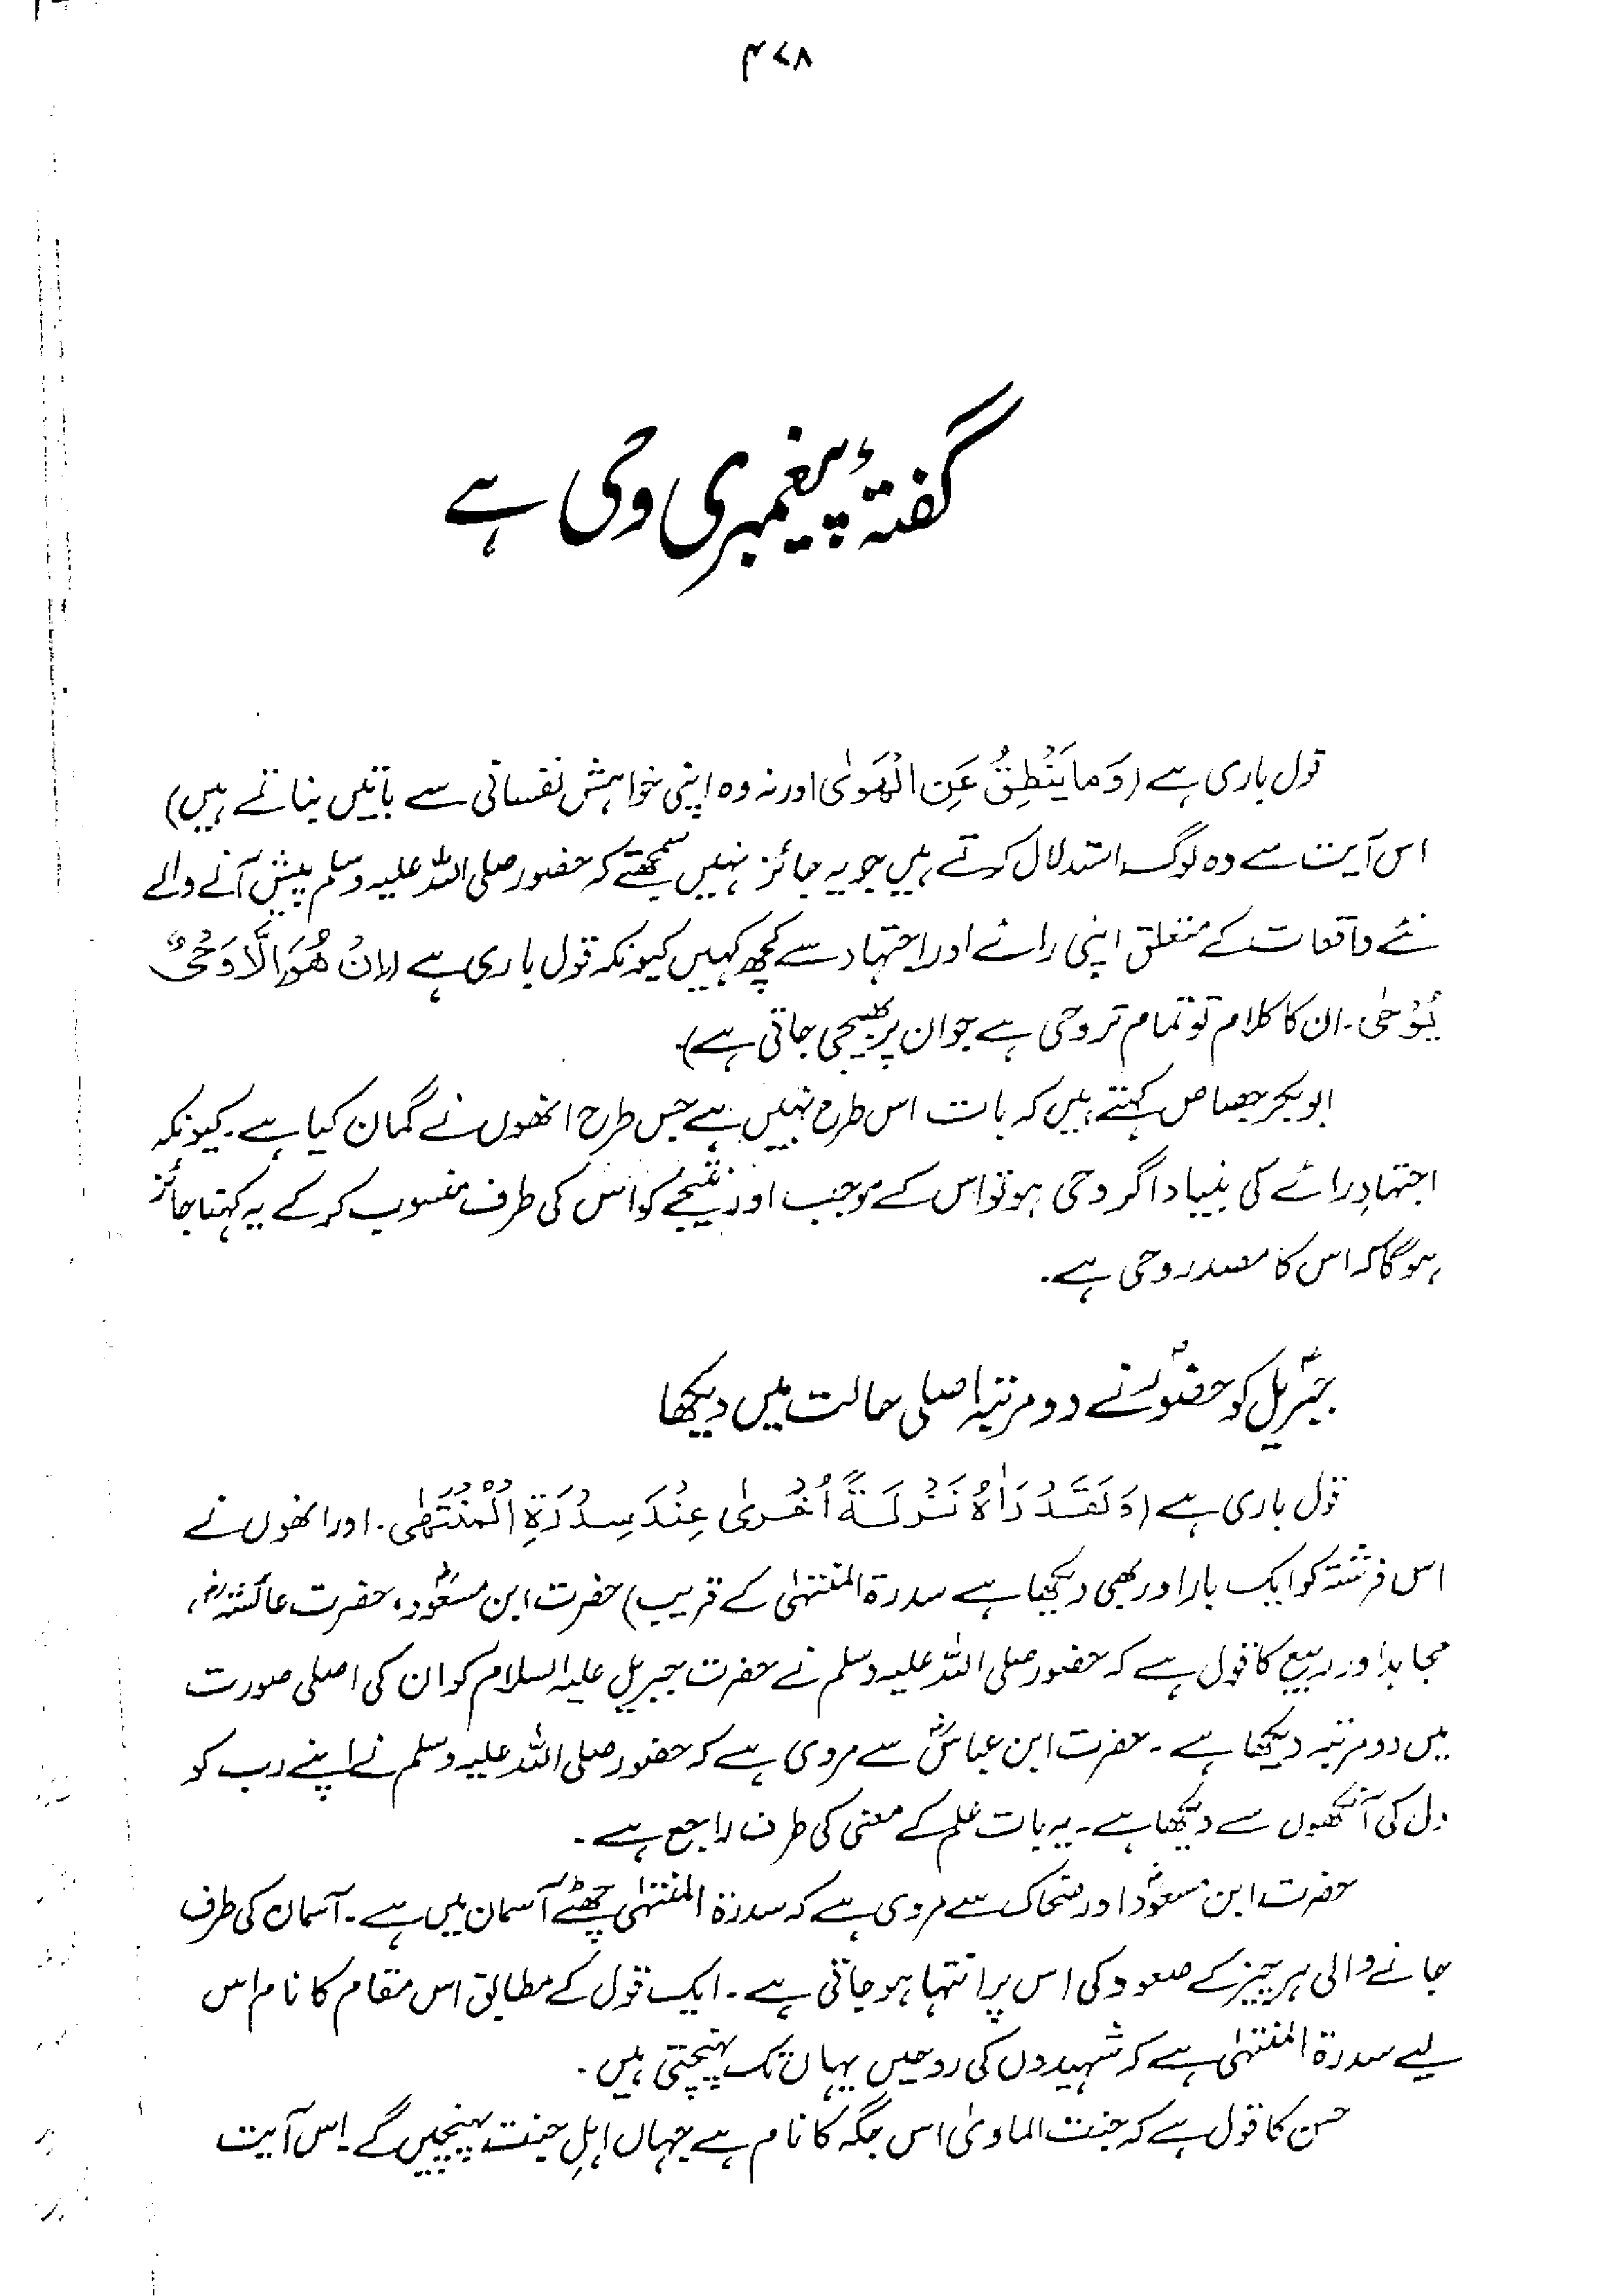 ۴۷۸
گفتۂ پیغمبری وحی ہے
قول باری ہے (وَمَا یَنْطِقُ عَنِ الْھَوٰی اور نہ وہ اپنی خواہش نفسانی سے باتیں بناتے ہیں)
اس آیت سے وہ لوگ استدلال کرتے ہیں جو یہ جائز نہیں سمجھتے کہ حضور صلی اللہ علیہ وسلم پیش آنے والے
نئے واقعات کے متعلق اپنی رائے اور اجتہاد سے کچھ کہیں کیونکہ قول باری ہے (اِنْ ھُوَ اِلَّا وَحْیٌ
یُّوْحٰی۔ ان کا کلام تو تمام تر وحی ہے جو ان پر بھیجی جاتی ہے)۔
ابوبکر جصاص کہتے ہیں کہ بات اس طرح نہیں ہے جس طرح انھوں نے گمان کیا ہے۔ کیونکہ
اجتہادِ رائے کی بنیاد اگر وحی ہو تو اس کے موجب اور نتیجے کو اس کی طرف منسوب کر کے یہ کہنا جائز
ہوگا کہ اس کا مصدر وحی ہے۔
جبریلؑ کو حضورؐ نے دو مرتبہ اصلی حالت میں دیکھا
قول باری ہے (وَلَقَدْ رَاٰہُ نَزْلَۃً اُخْرٰی عِنْدَ سِدْرَۃِ الْمُنْتَھٰی۔ اور انھوں نے
اس فرشتہ کو ایک بار اور بھی دیکھا ہے سدرۃ المنتہٰی کے قریب) حضرت ابن مسعودؓ، حضرت عائشہؓ،
مجاہد اور ربیع کا قول ہے کہ حضور صلی اللہ علیہ وسلم نے حضرت جبریل علیہ السلام کو ان کی اصلی صورت
میں دو مرتبہ دیکھا ہے۔ حضرت ابن عباسؓ سے مروی ہے کہ حضور صلی اللہ علیہ وسلم نے اپنے رب کو
دل کی آنکھوں سے دیکھا ہے۔ یہ بات علم کے معنی کی طرف راجع ہے۔
حضرت ابن مسعودؓ اور ضحاک سے مروی ہے کہ سدرۃ المنتہٰی چھٹے آسمان میں ہے۔ آسمان کی طرف
جانے والی ہر چیز کے صعود کی اس پر انتہا ہو جاتی ہے۔ ایک قول کے مطابق اس مقام کا نام اس
لیے سدرۃ المنتہٰی ہے کہ شہیدوں کی روحیں یہاں تک پہنچتی ہیں۔
حسن کا قول ہے کہ جنت الماوٰی اس جگہ کا نام ہے جہاں اہلِ جنت پہنچیں گے۔ اس آیت